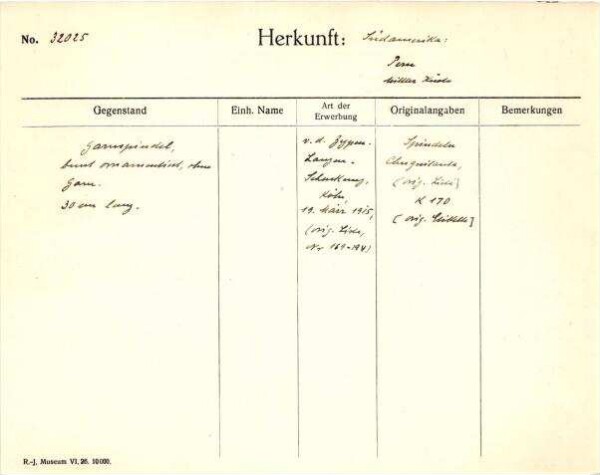 No. 32025
Herkunft: Südamerika:
Peru
Mittlere Küste
Gegenstand
Einh. Name
Art der
Erwerbung
Originalangaben
Bemerkungen
Garnspindel,
bunt ornamentiert, ohne
Garn.
30 cm lang.
v. d. Zypen-
Langen-
Schenkung,
Köln,
19. März 1915,
(orig. Liste,
Nr 169-194)
Spindeln
(orig. Liste)
K 170
(orig. Etikette)
R.-J. Museum VI. 26. 10000.